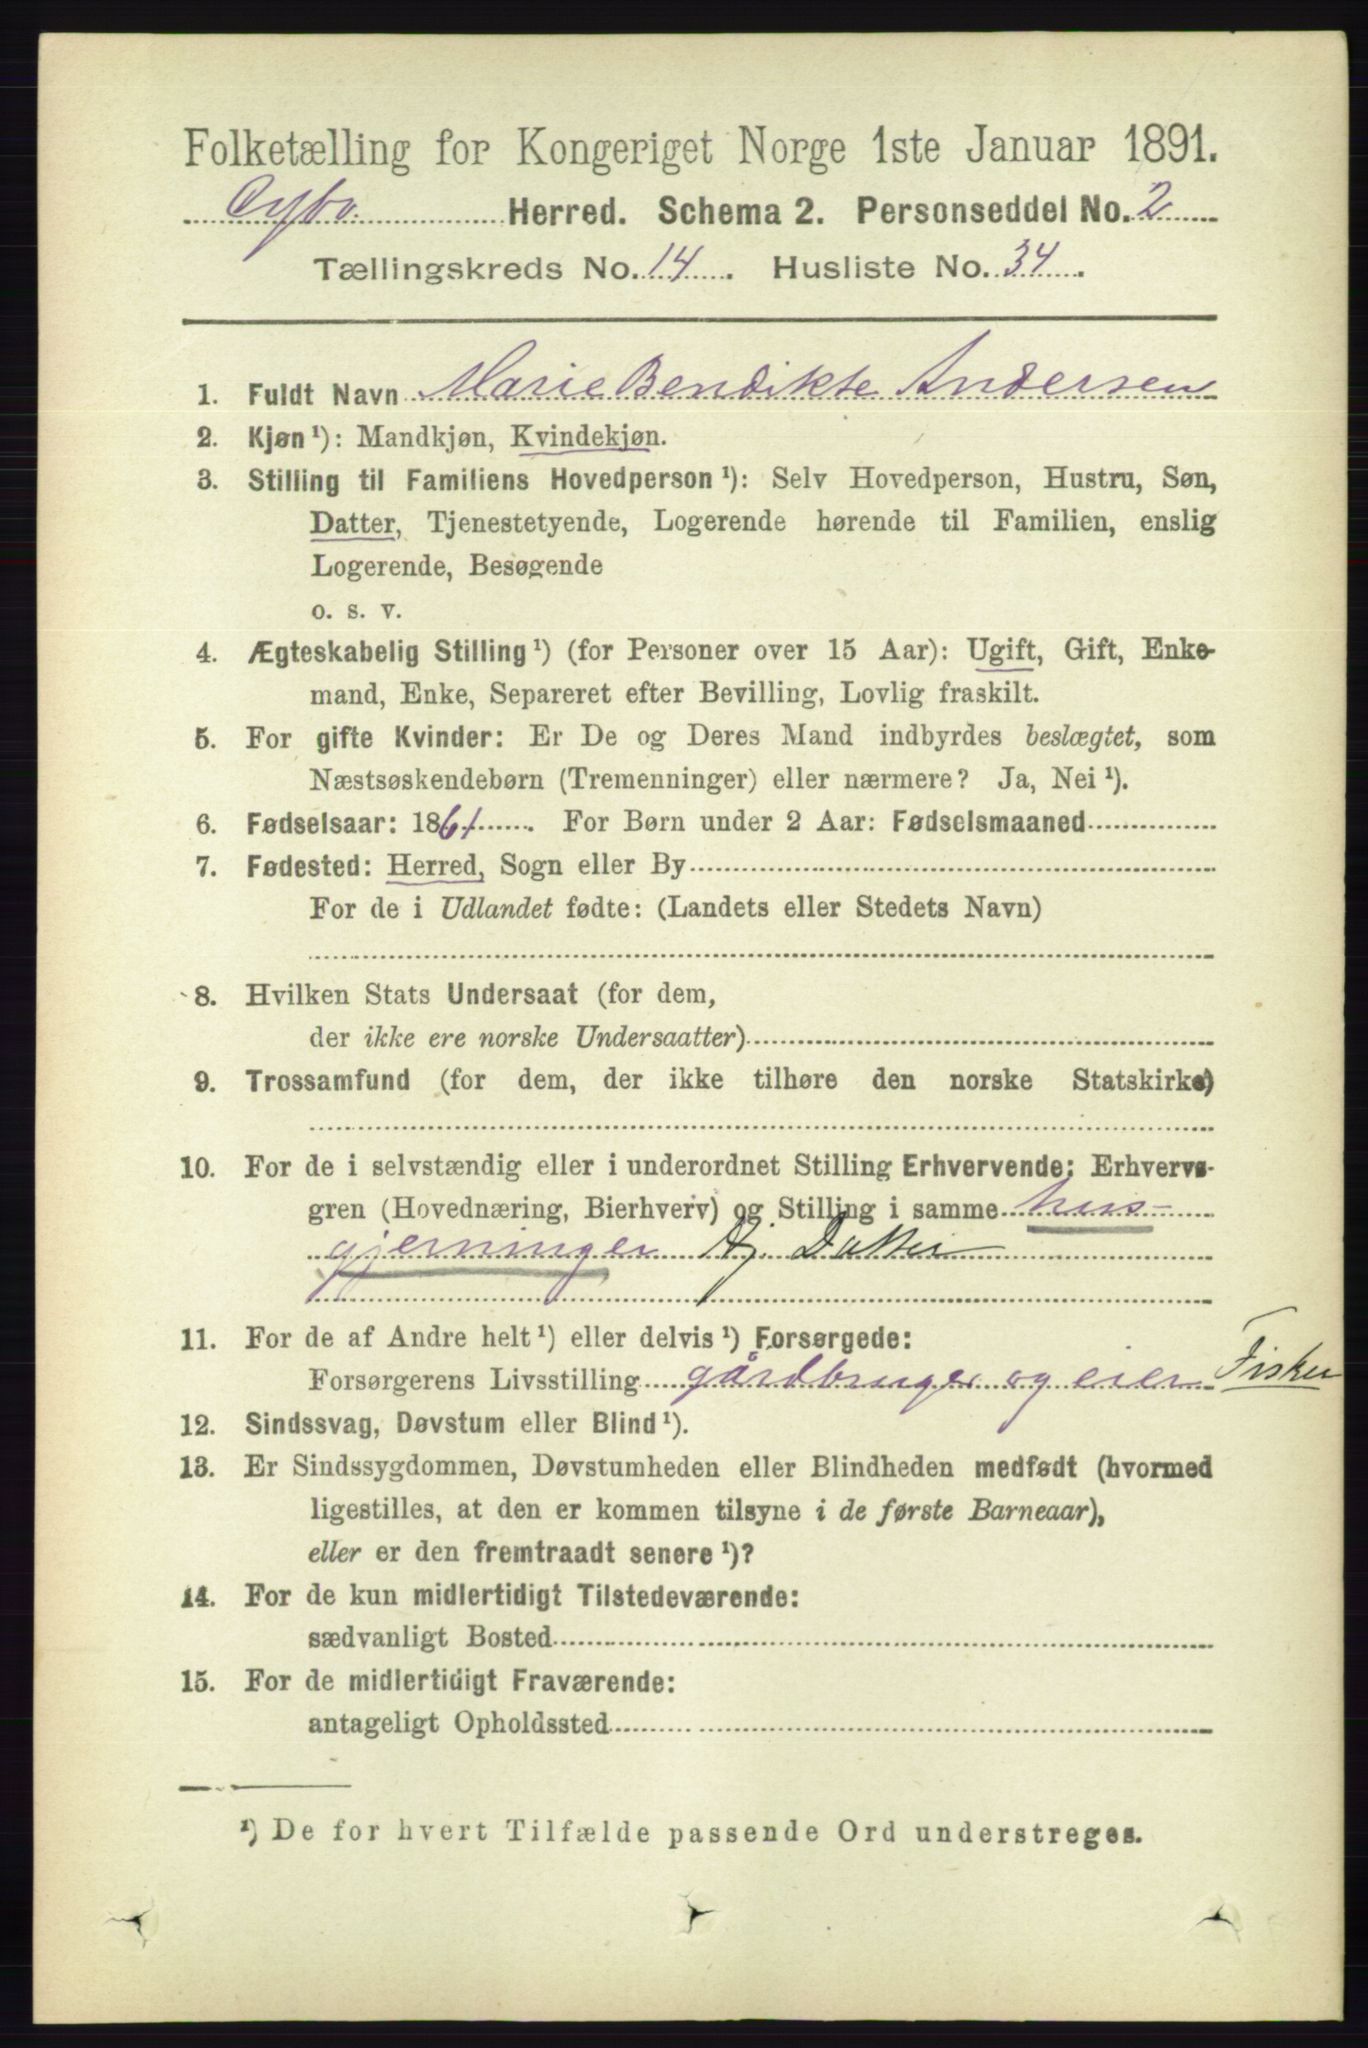 Folketælling for Kongeriget Norge 1ste Januar 1891.
Herred. Schema 2. Personseddel No. 2
Tællingskreds No. 14. Husliste No. 34.
1. Fuldt Navn Marie Bendikte Andersen
2. Kjøn ¹): Mandkjøn, Kvindekjøn.
3. Stilling til Familiens Hovedperson ¹): Selv Hovedperson, Hustru, Søn,
Datter, Tjenestetyende, Logerende hørende til Familien, enslig
Logerende, Besøgende
o. s. v.
4. Ægteskabelig Stilling ¹) (for Personer over 15 Aar): Ugift, Gift, Enke-
mand, Enke, Separeret efter Bevilling, Lovlig fraskilt.
5. For gifte Kvinder: Er De og Deres Mand indbyrdes beslægtet, som
Næstsøskendebørn (Tremenninger) eller nærmere? Ja, Nei ¹).
6. Fødselsaar: 1861. For Børn under 2 Aar: Fødselsmaaned
7. Fødested: Herred, Sogn eller By
For de i Udlandet fødte: (Landets eller Stedets Navn)
8. Hvilken Stats Undersaat (for dem,
der ikke ere norske Undersaatter)
9. Trossamfund (for dem, der ikke tilhøre den norske Statskirke)
10. For de i selvstændig eller i underordnet Stilling Erhvervende: Erhvervs-
gren (Hovednæring, Bierhverv) og Stilling i samme hus-
gjerninger Hj. Datter
11. For de af Andre helt ¹) eller delvis ¹) Forsørgede:
Forsørgerens Livsstilling gårdbruger og eier Fisker
12. Sindssvag, Døvstum eller Blind ¹).
13. Er Sindssygdommen, Døvstumheden eller Blindheden medfødt (hvormed
ligestilles, at den er kommen tilsyne i de første Barneaar),
eller er den fremtraadt senere ¹)?
14. For de kun midlertidigt Tilstedeværende:
sædvanligt Bosted
15. For de midlertidigt Fraværende:
antageligt Opholdssted
¹) De for hvert Tilfælde passende Ord understreges.